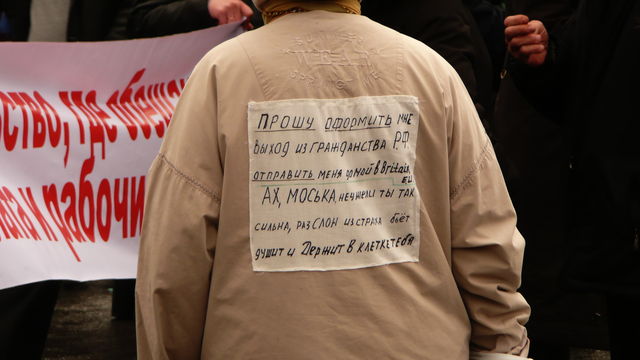 ство, где обеща
за и рабочи
Прошу оформить мне
выход из гражданства РФ.
отправить меня домой в Britain,
EU
Ах, Моська, неужели ты так
сильна, раз Слон из страха бьёт
душит и Держит в клетке тебя